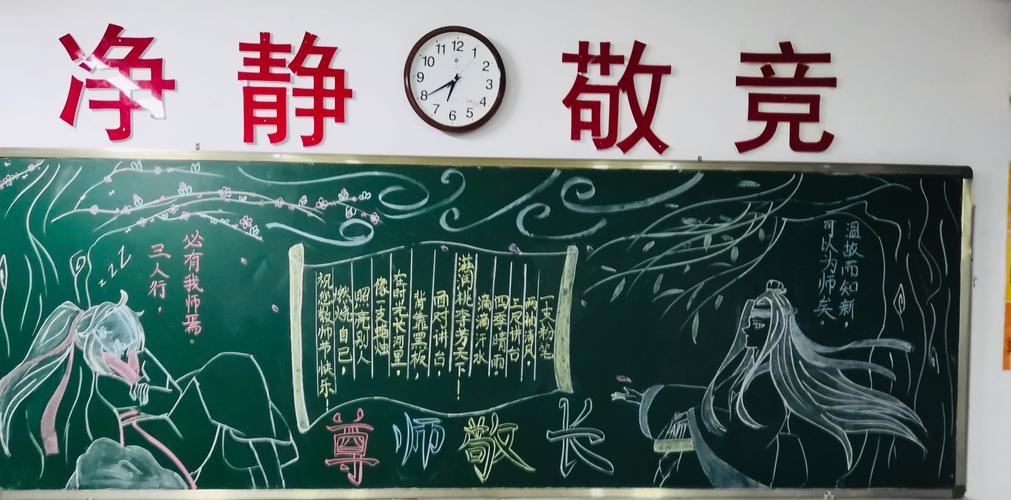 净静敬竞
12
1
2
3
4
5
6
7
8
9
10
11
zzz
三人行，
必有我师焉。
一支粉笔
两袖清风，
三尺讲台
四季晴雨。
滴滴汗水
滋润桃李芳天下——
面对讲台，
背靠黑板，
在时光长河里，
像一支蜡烛
照亮别人
燃烧自己，
祝您教师节快乐
温故而知新，
可以为师矣。
尊师敬长